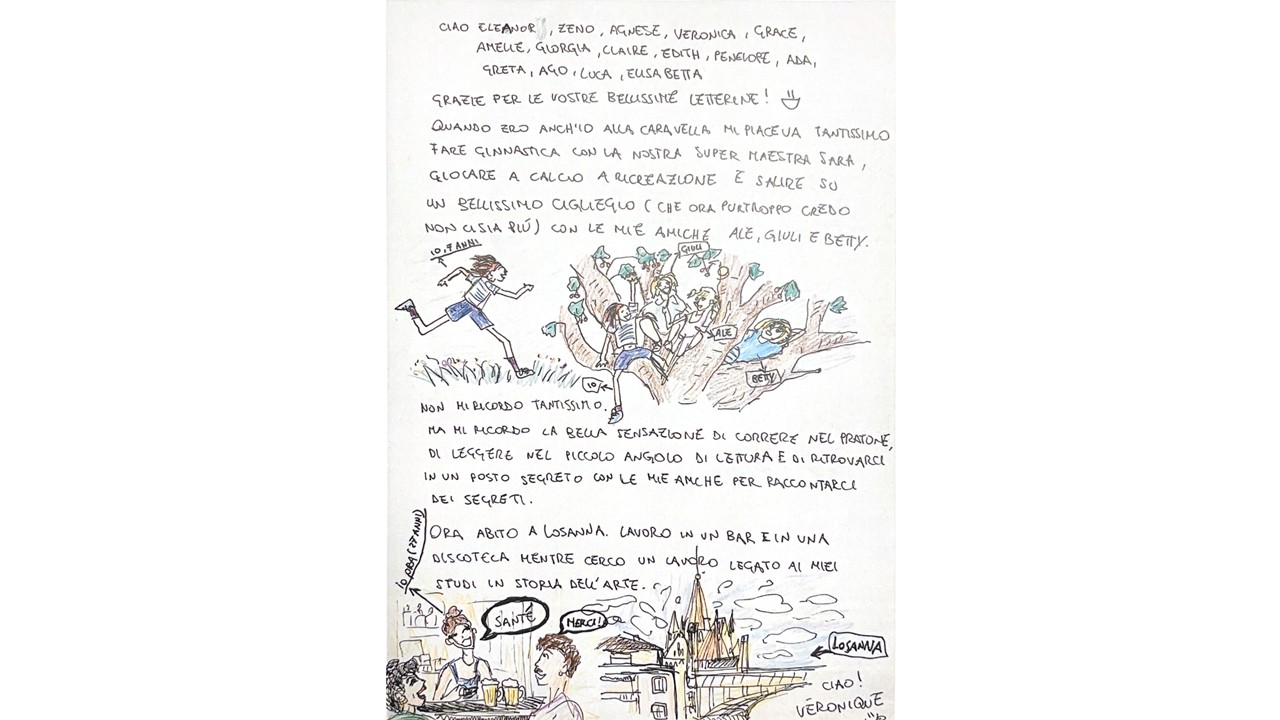 CIAO ELEANOR, ZENO, AGNESE, VERONICA, GRACE,
AMELIE, GIORGIA, CLAIRE, EDITH, PENELOPE, ADA,
GRETA, AGO, LUCA, ELISABETTA
GRAZIE PER LE VOSTRE BELLISSIME LETTERINE!
QUANDO ERO ANCH'IO ALLA CARAVELLA MI PIACEVA TANTISSIMO
FARE GINNASTICA CON LA NOSTRA SUPER MAESTRA SARA,
GIOCARE A CALCIO A RICREAZIONE E SALIRE SU
UN BELLISSIMO CIGLIEGIO (CHE ORA PURTROPPO CREDO
NON CI SIA PIÚ) CON LE MIE AMICHE ALE, GIULI E BETTY.
IO, 7 ANNI
GIULI
ALE
BETTY
IO
NON MI RICORDO TANTISSIMO.
MA MI RICORDO LA BELLA SENSAZIONE DI CORRERE NEL PRATONE,
DI LEGGERE NEL PICCOLO ANGOLO DI LETTURA E DI RITROVARCI
IN UN POSTO SEGRETO CON LE MIE AMICHE PER RACCONTARCI
DEI SEGRETI.
ORA ABITO A LOSANNA. LAVORO IN UN BAR E IN UNA
DISCOTECA MENTRE CERCO UN LAVORO LEGATO AI MIEI
STUDI IN STORIA DELL'ARTE.
IO ORA (22 ANNI)
SANTÉ
MERCI!
LOSANNA
CIAO!
VERONIQUE